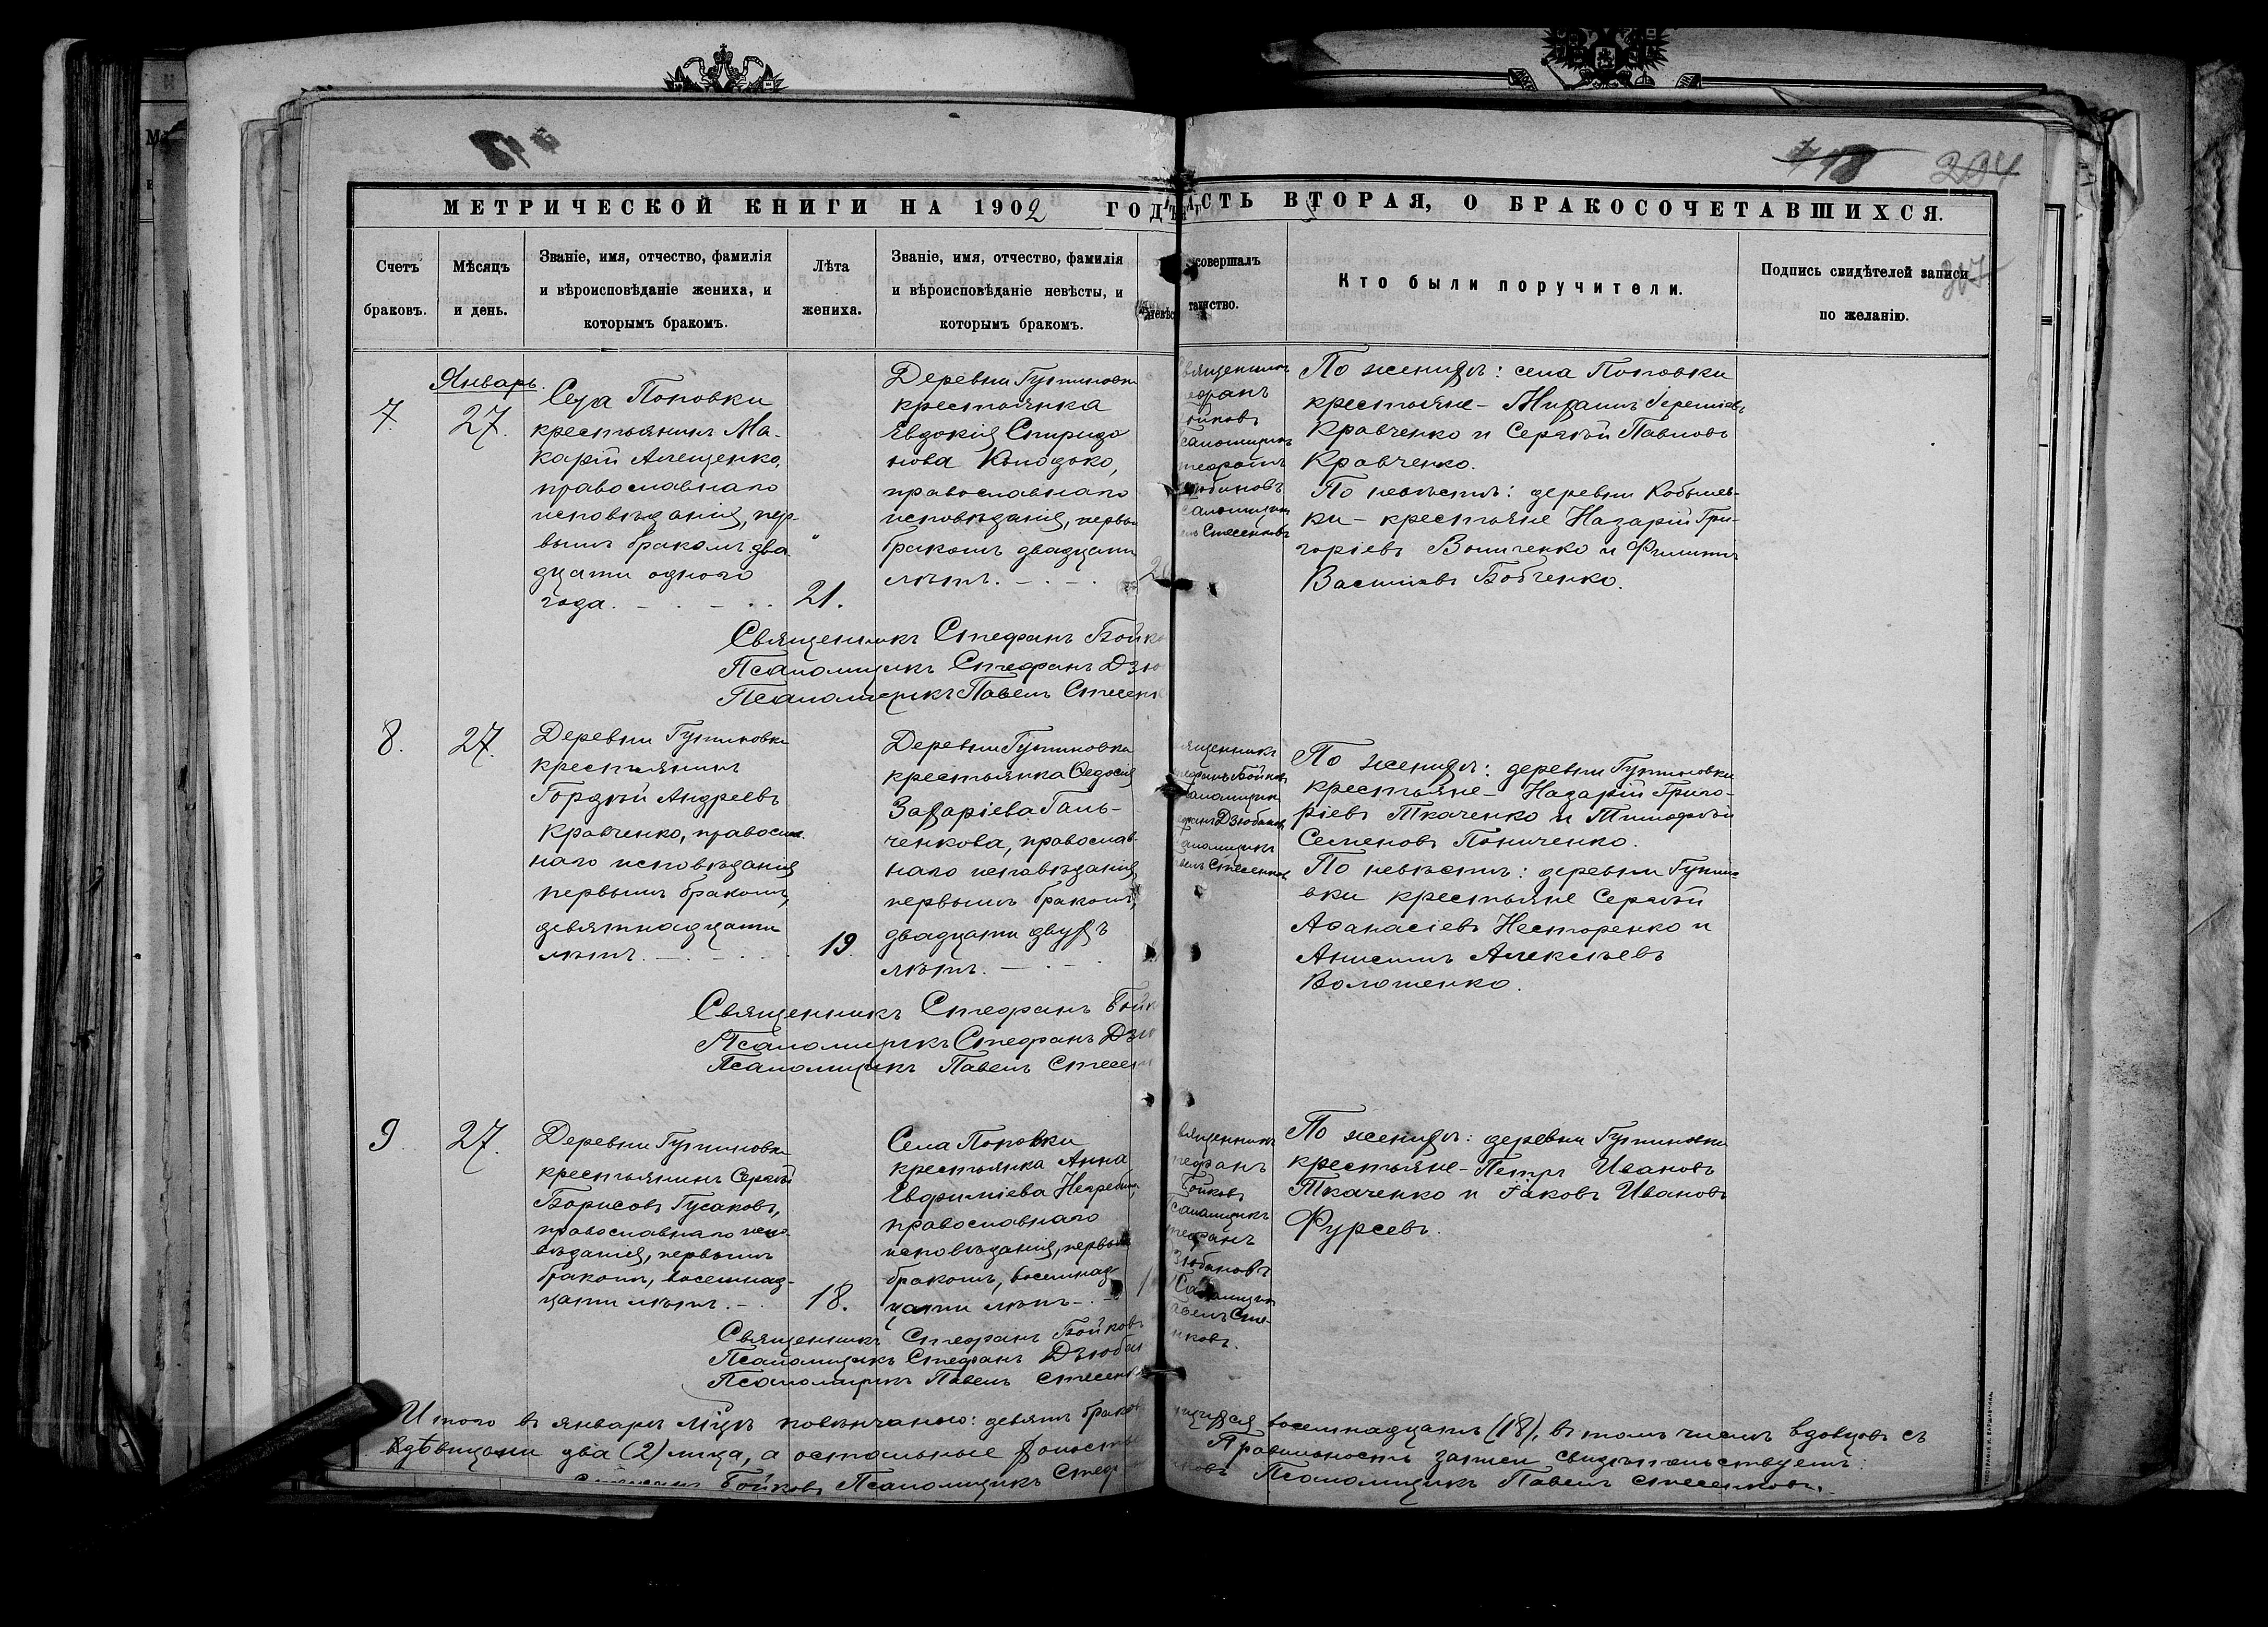 118 294
МЕТРИЧЕСКОЙ КНИГИ НА 1902 ГОДЪ
ЧАСТЬ ВТОРАЯ, О БРАКОСОЧЕТАВШИХСЯ.
Счетъ
браковъ.
Мѣсяцъ
и день.
Званіе, имя, отчество, фамилія
и вѣроисповѣданіе жениха, и
которымъ бракомъ.
Лѣта
жениха.
Званіе, имя, отчество, фамилія
и вѣроисповѣданіе невѣсты, и
которымъ бракомъ.
совершалъ
таинство.
Кто были поручители.
Подпись свидѣтелей записи
по желанію.
Январь.
7
27.
Села Поповки
крестьянинъ Ма-
карій Алещенко,
православнаго
исповѣданія, пер-
вымъ бракомъ два
дцати одного
года.
21.
Деревни Гутиновки
крестьянка
Евдокія Спиридо
нова
православнаго
исповѣданія, первым
бракомъ двадцати
лѣтъ.
Стесенковъ
По женихѣ: села Поповки
крестьяне - Михаилъ
Кравченко и Сергѣй Павловъ
Кравченко.
По невѣстѣ: деревни Кобылев-
ки - крестьяне Назарій Гри-
горіевъ Величенко и Филиппъ
Васильевъ Бобченко.
Священникъ Стефанъ Бойко
Псаломщикъ Стефанъ Дзю
Псаломщикъ Павелъ Стесенк
8.
27.
Деревни Гутиновки
крестьянинъ
Гордѣй Андреевъ
Кравченко, православ.
наго исповѣданія
первымъ бракомъ,
девятнадцати
лѣтъ.
19.
Деревни Гутиновки
крестьянка Ѳедосія
Захаріева Галь-
ченкова, православ-
наго исповѣданія,
первымъ бракомъ,
двадцати двухъ
лѣтъ.
По женихѣ: деревни Гутиновки
крестьяне - Назарій Григо-
ріевъ Ткаченко и Тимофѣй
Семеновъ Поличенко.
По невѣстѣ: деревни Гутино-
вки крестьяне Сергѣй
Аѳанасіевъ Несторенко и
Анисимъ Алексѣевъ
Волошенко.
Священникъ Стефанъ Бойк
Псаломщикъ Стефанъ Дзю
Псаломщикъ Павелъ Стесен
9
27.
Деревни Гутиновки
крестьянинъ Сергѣй
Борисовъ Гусаковъ,
православнаго испо-
вѣданія, первымъ
бракомъ, восемнад-
цати лѣтъ.
18.
Села Поповки
крестьянка Анна
Евфиміева
православнаго
исповѣданія, первым
бракомъ, восемнад
цати лѣтъ
По женихѣ: деревни Гутиновки
крестьяне - Петръ Ивановъ
Ткаченко и Іаковъ Ивановъ
Фурсевъ.
Священникъ Стефанъ Бойковъ
Псаломщикъ Стефанъ Дзюбан
Псаломщикъ Павелъ Стесенк
Итого въ январѣ мѣцѣ повѣнчано: девять браков
восемнадцать (18), въ томъ числѣ вдовцовъ съ
вдовицами два (2) лица, а остальные холостые
Правильность записи свидѣтельствуемъ:
Бойковъ Псаломщикъ Стеф
Псаломщикъ Павелъ Стесенковъ.